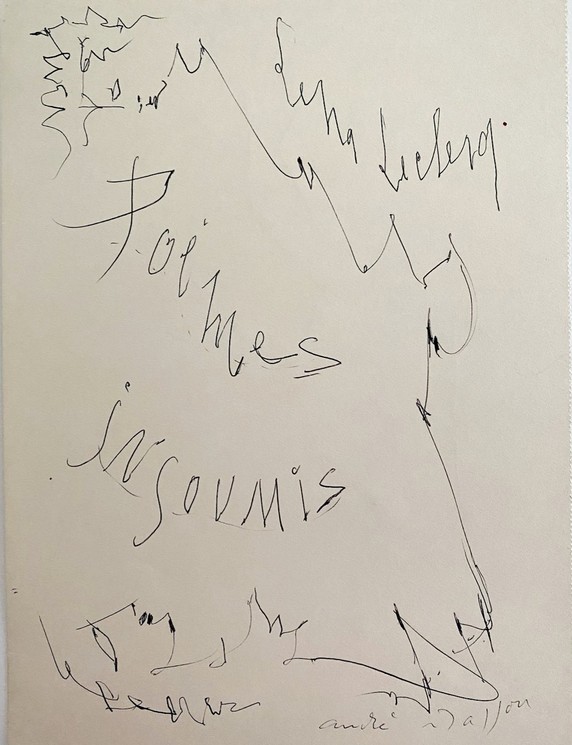 Lena Leclercq.
Poèmes
insoumis
andré Masson